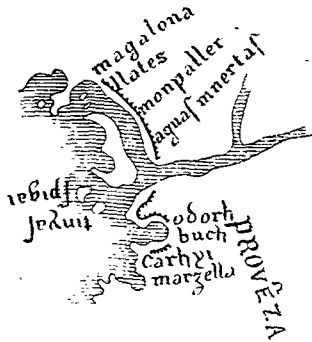 magalona
llates
monpaller
aquas mnertas
spigai
odorh
buch
carhyi
marzella
PROVẼZA